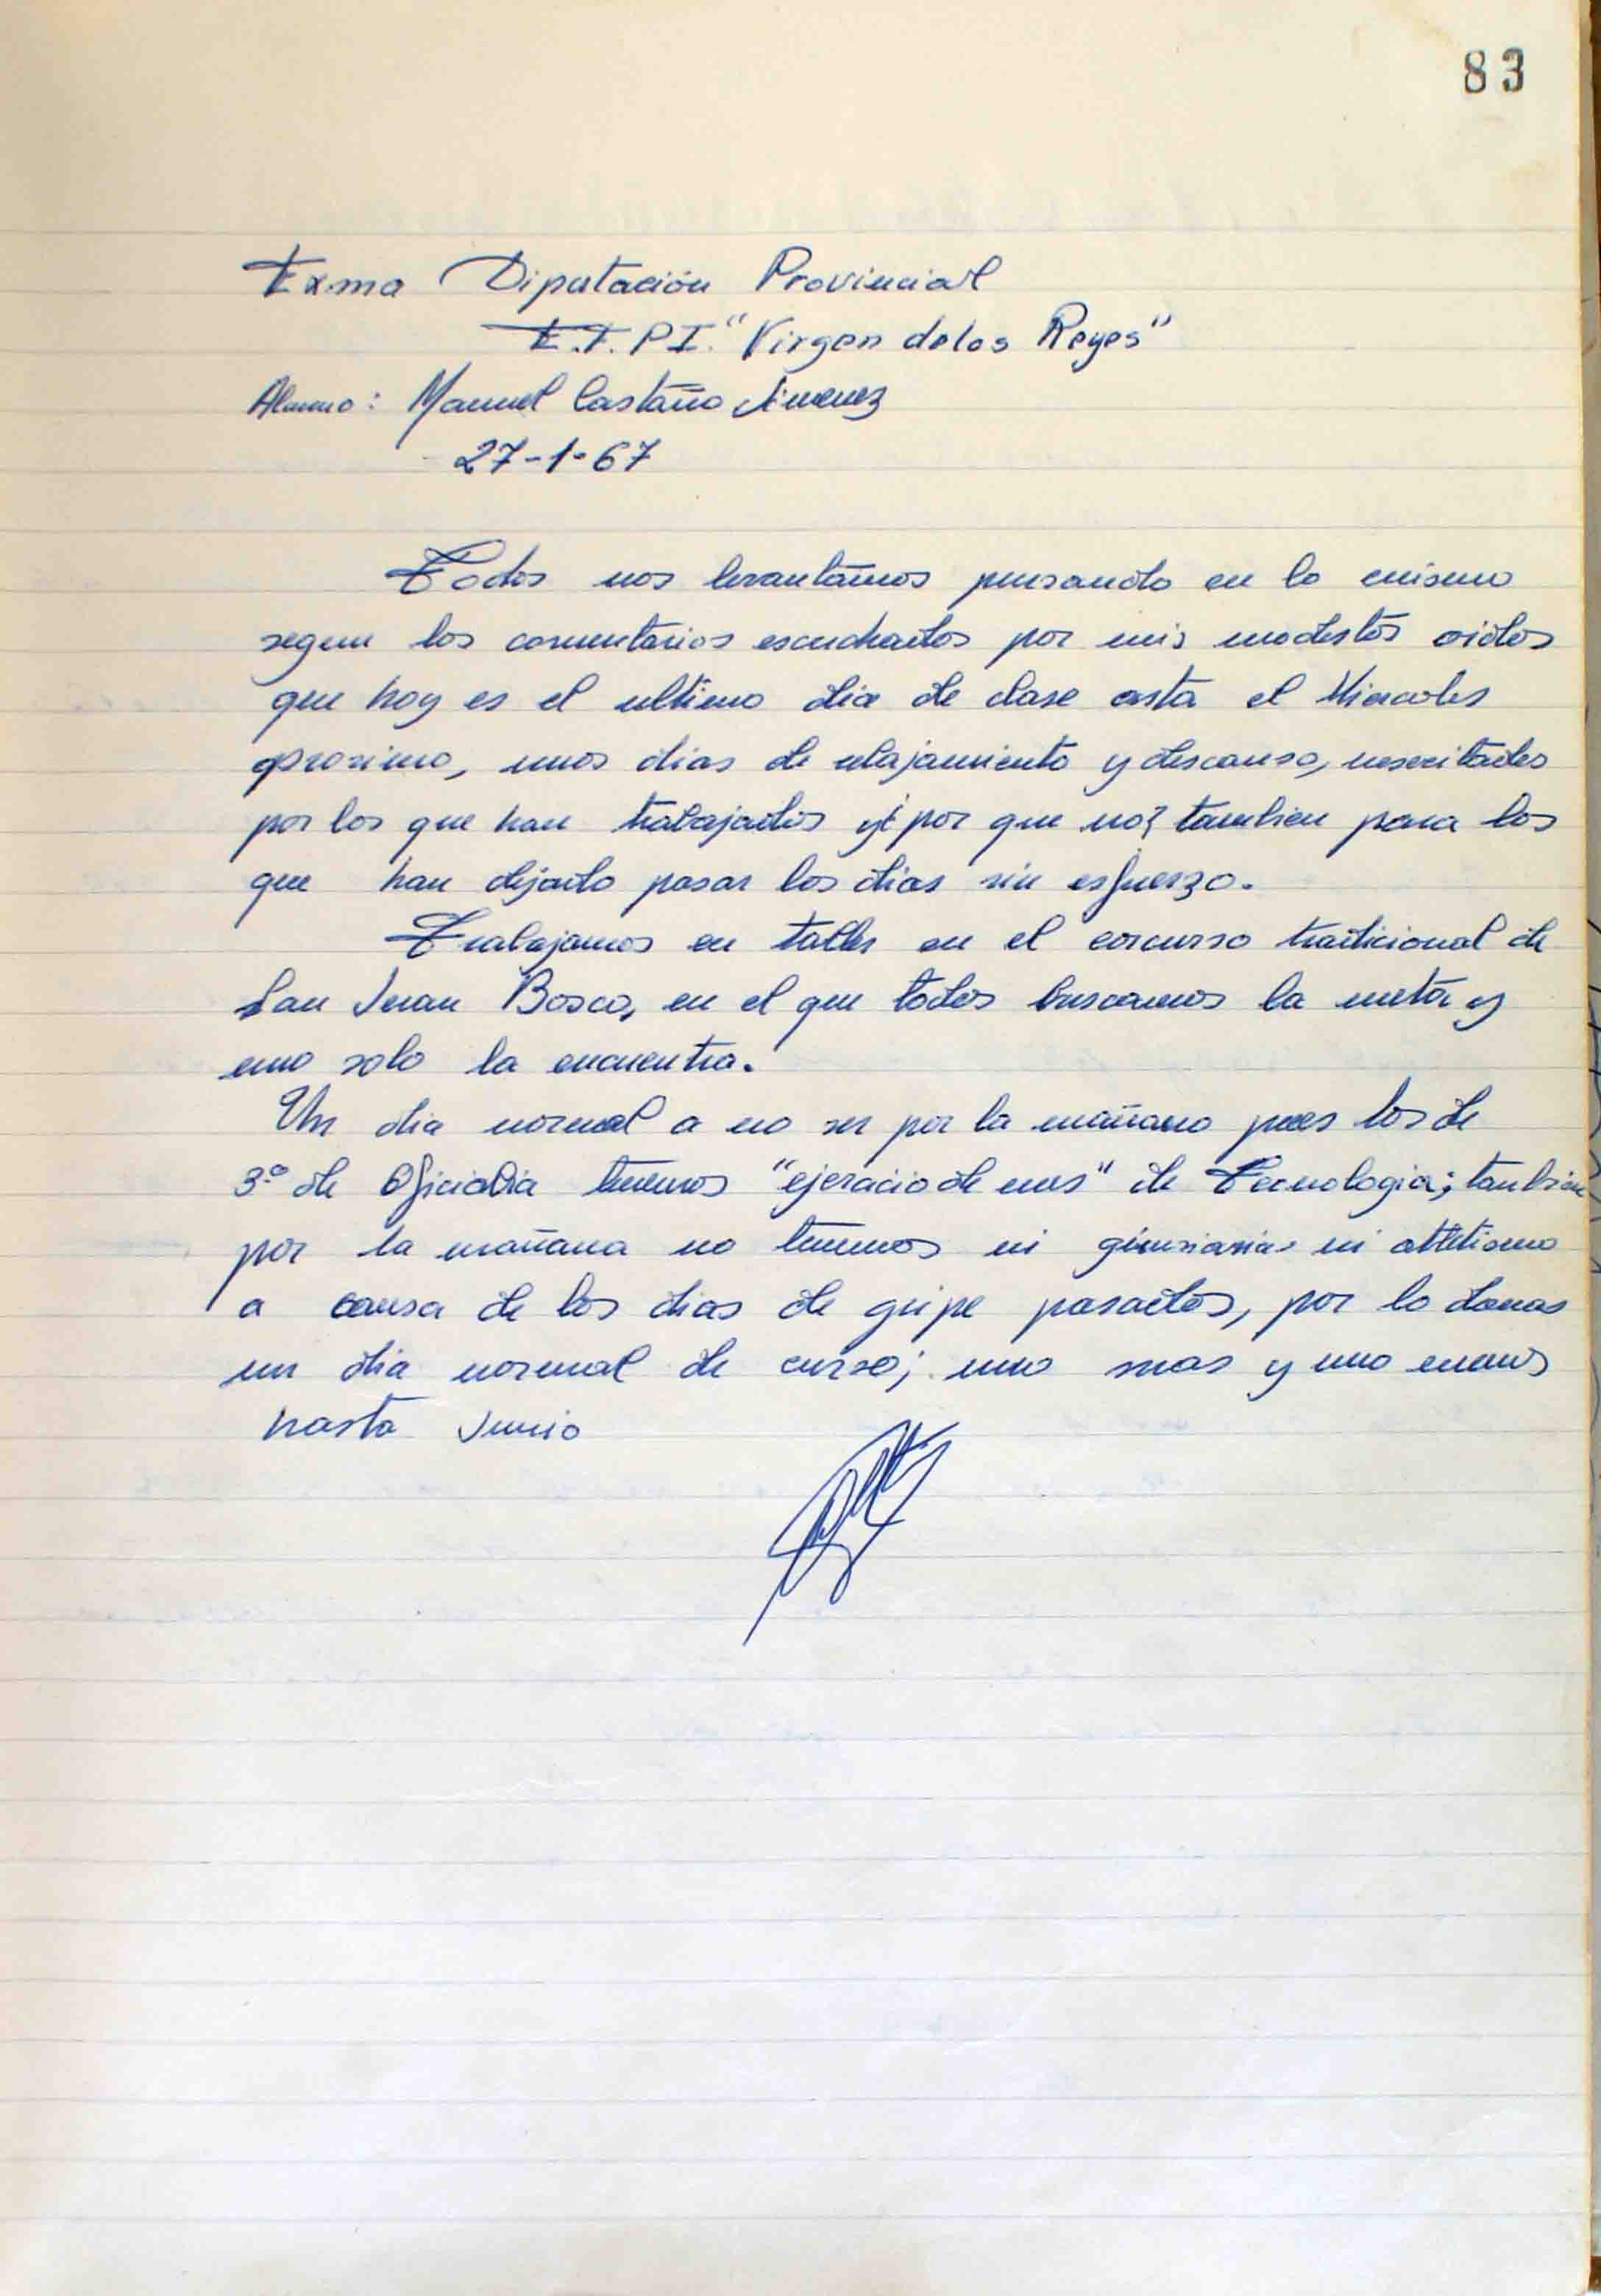 83
Exma Diputación Provincial
E.T.P.I. "Virgen de los Reyes"
Alumno: Manuel Castaño Jimenez
27-1-67
Todos nos levantamos pensando en lo mismo
segun los comentarios escuchados por mis modestos oidos
que hoy es el ultimo dia de clase asta el Miercoles
proximo, unos dias de relajamiento y descanso, nesecitados
por los que han trabajados y ¿por que no? tambien para los
que han dejado pasar los dias sin esfuerzo.
Trabajamos en taller en el corcurso tradicional de
San Juan Bosco, en el que todos buscamos la meta y
uno solo la encuentra.
Un dia normal a no ser por la mañana pues los de
3º de Oficialia tenemos "ejercicio de mes" de Tecnologia; tambien
por la mañana no tenemos ni gimnasia ni atletismo
a causa de los dias de gripe pasados, por lo demas
un dia normal de curso; uno mas y uno menos
hasta Junio